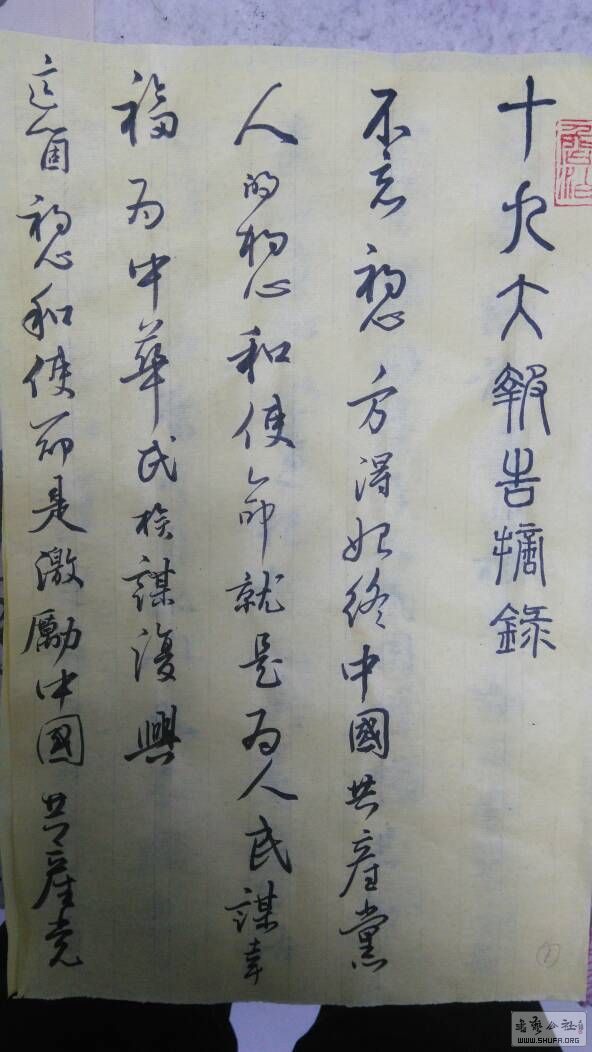 十九大報告摘錄
不忘初心方得始终中國共產黨
人的初心和使命就是为人民謀幸
福为中華民族謀復興
這個初心和使命是激勵中國共產党
①
书艺公社
WWW.SHUFA.ORG